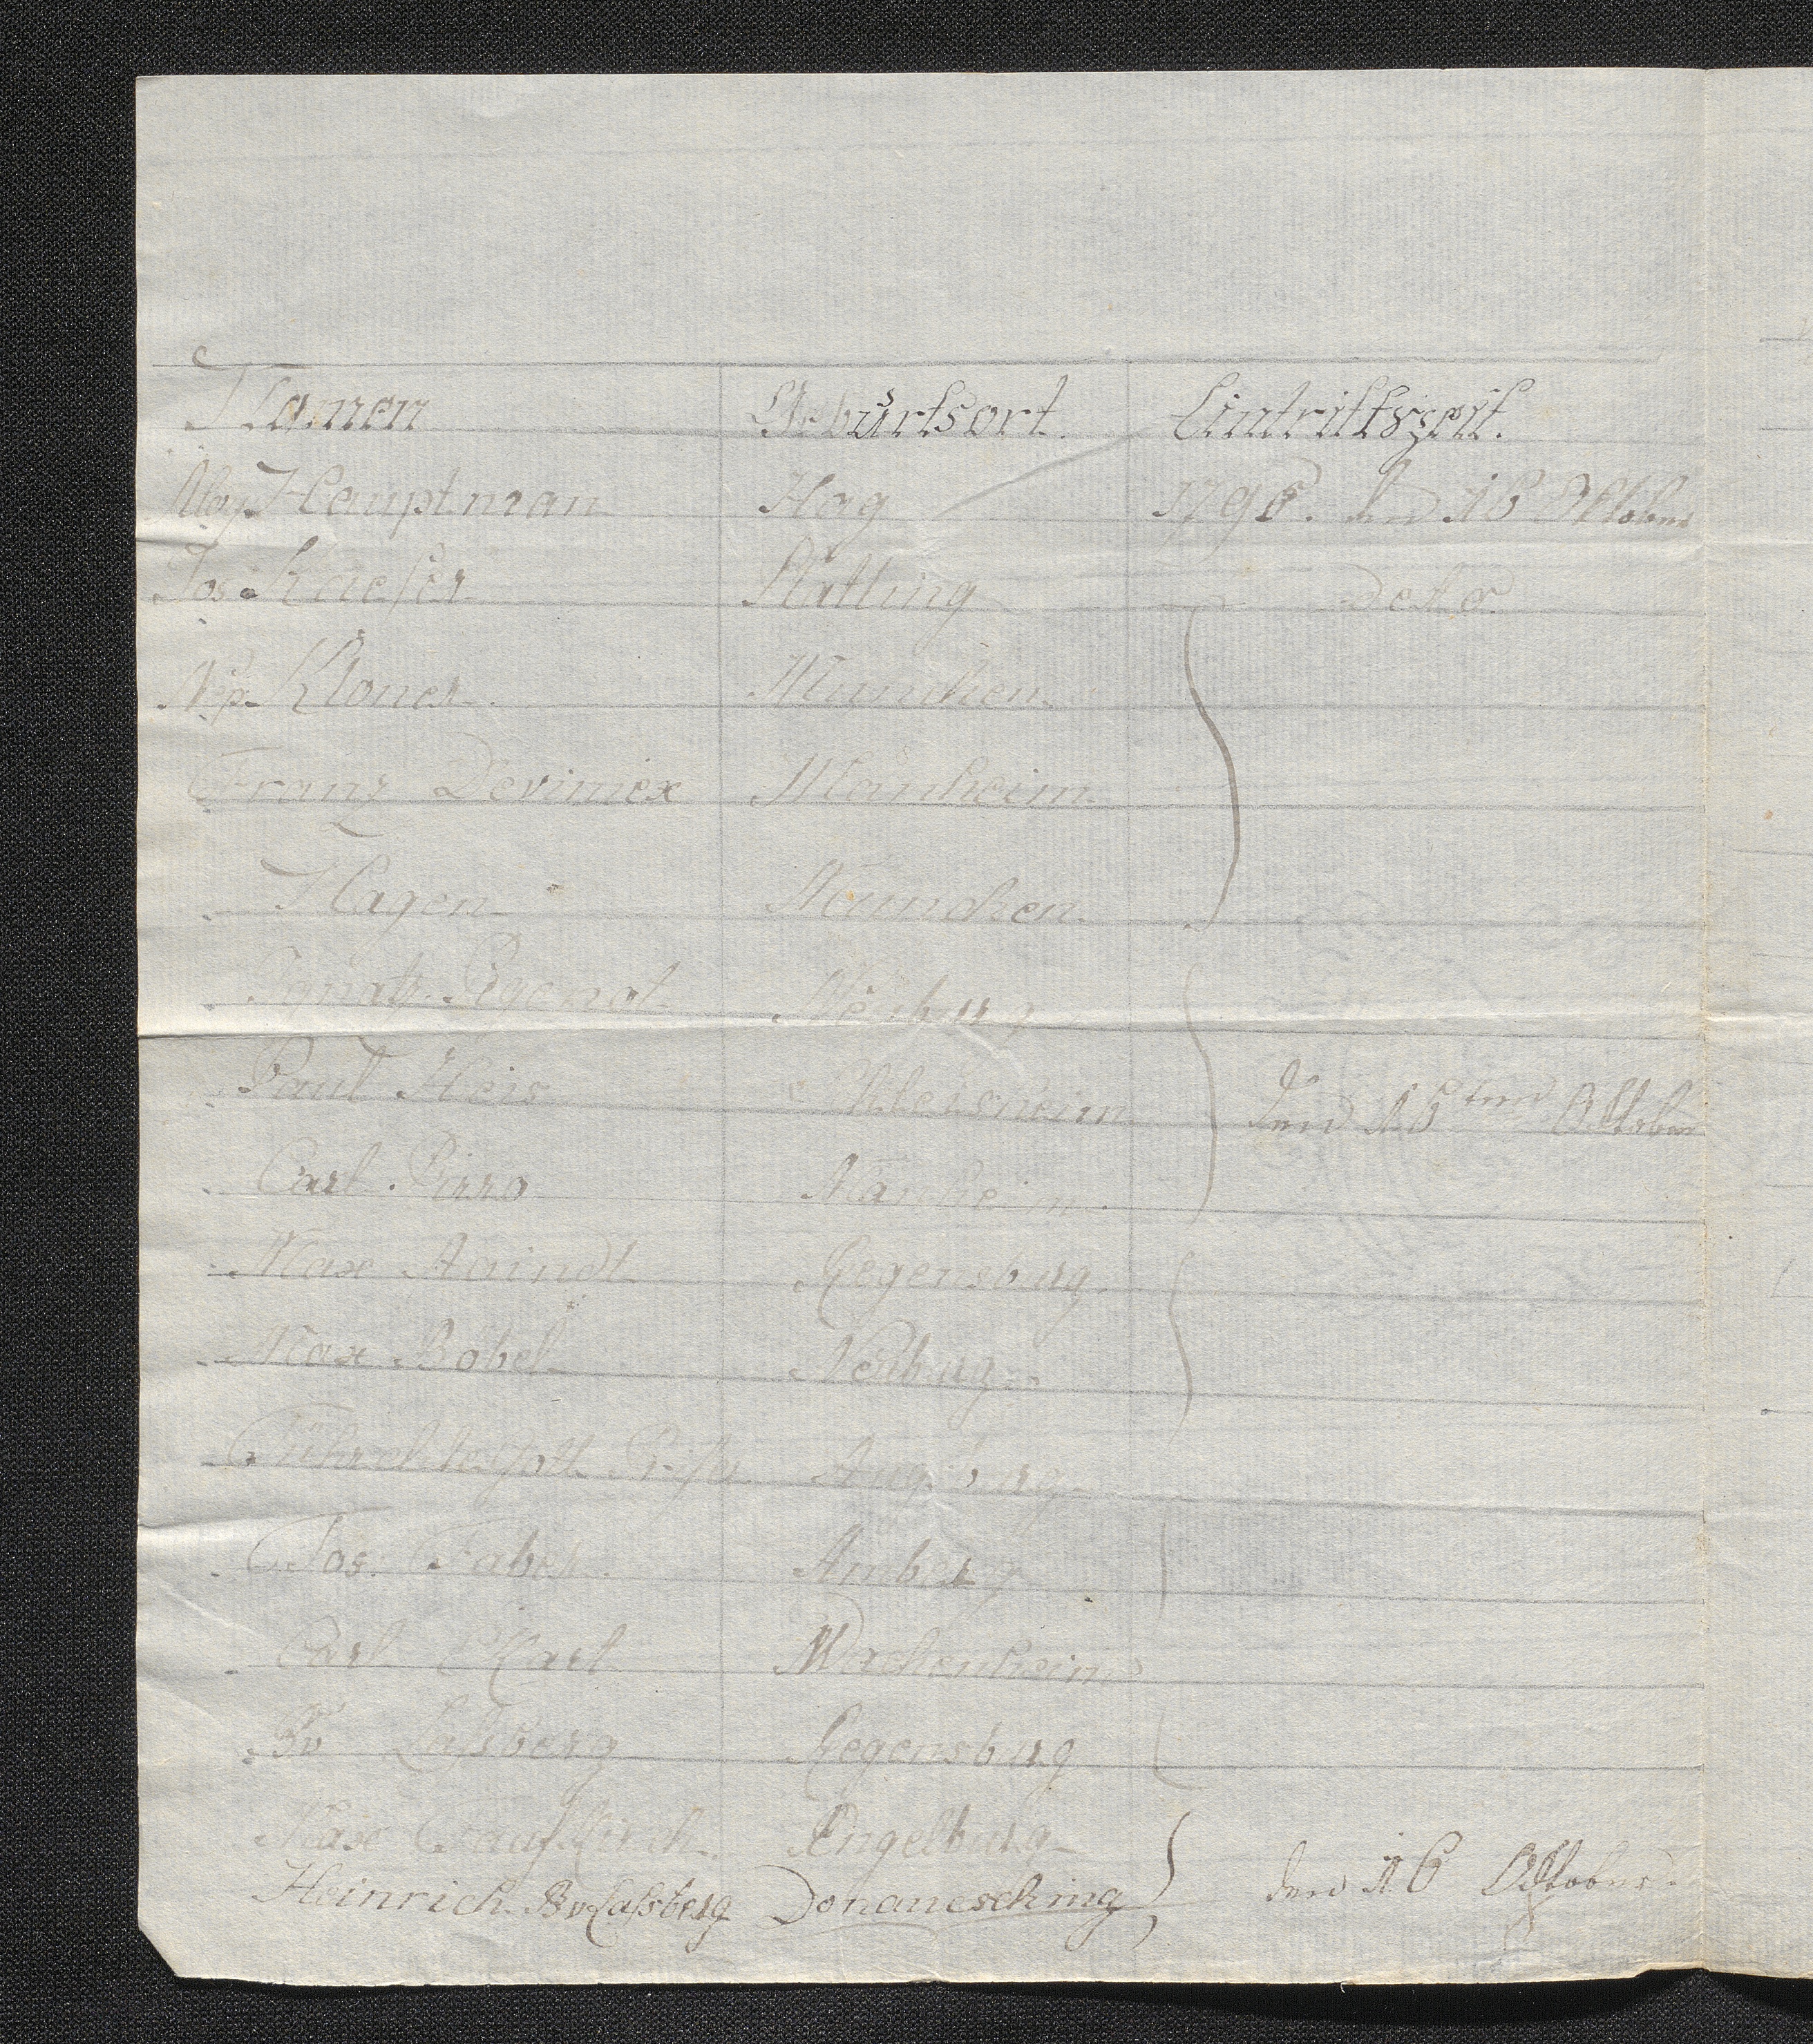 Namen Geburtsort. Eintrittszeit.
Aloy. Hauptman Hag 1796. den 16 Oktober
Jos. Kaeser Platling detto
Nep. Kloner München.
Franz Deviniex Manheim
Hagen München.
Ignatz Neuburg
Paul Heis den 15 ten Oktober
Carl Pirro Manheim.
Max Aaindl Regensburg.
Max Babel Neuburg.
Augsburg
Jos. Faber. Amberg
Carl Wachenheim
Bv Laßberg Regensburg
Max Taufkirch Engelburg
Heinrich Bv Laßberg Donauesching den 16 Oktober.